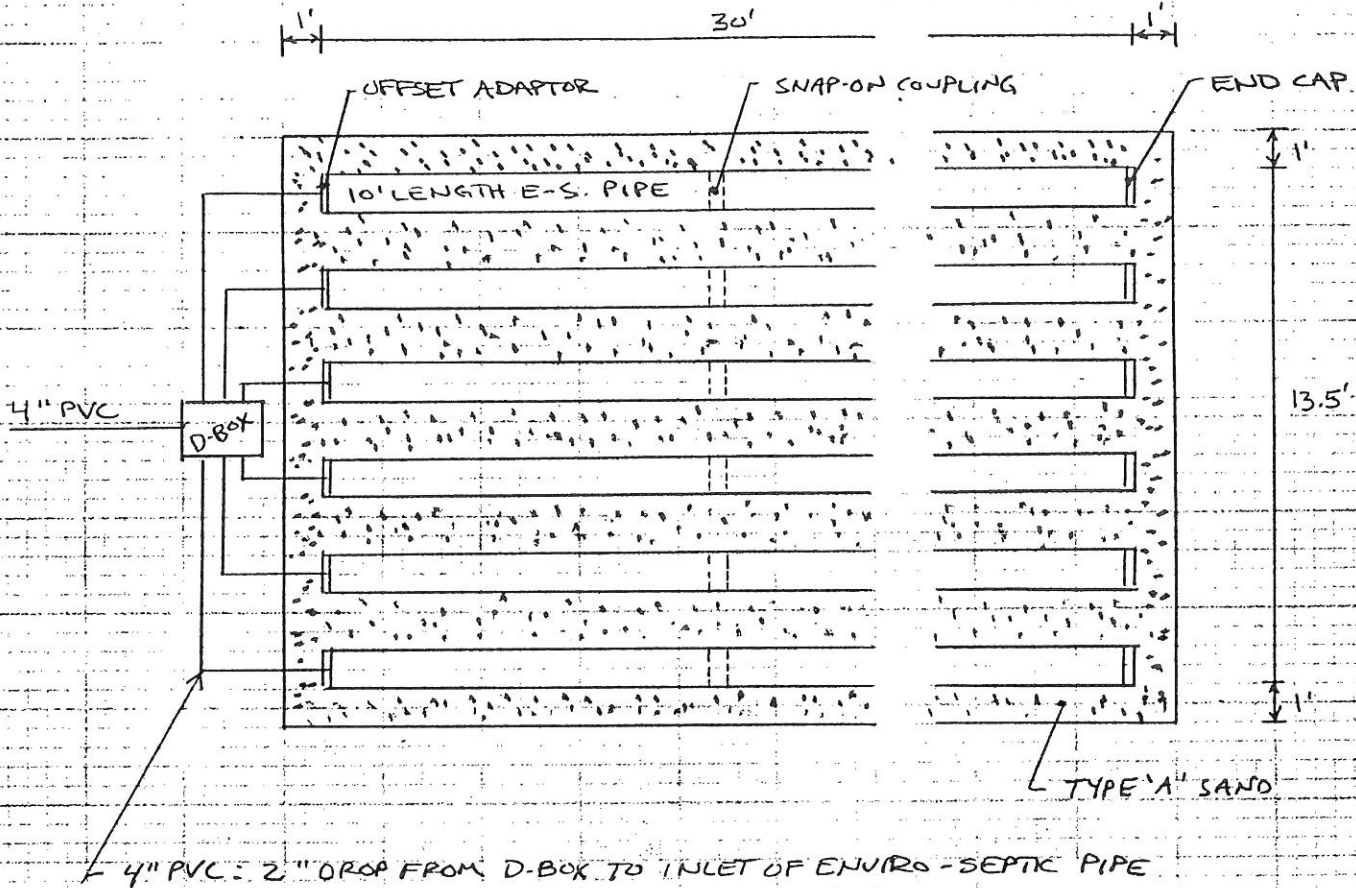 1' 30' 1'
OFFSET ADAPTOR SNAP-ON COUPLING END CAP
1'
10' LENGTH E-S. PIPE
4" PVC
D-BOX
13.5'
1'
TYPE 'A' SAND
4" PVC: 2" DROP FROM D-BOX TO INLET OF ENVIRO-SEPTIC PIPE